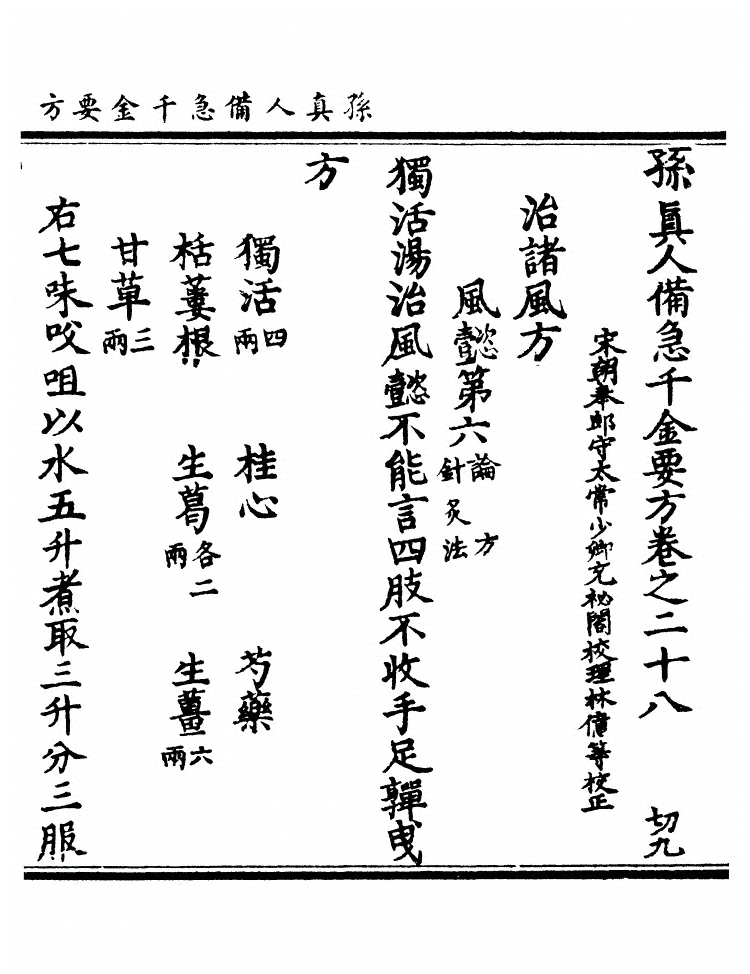 孫真人備急千金要方
孫真人備急千金要方卷之二十八 切九
宋朝奉郎守太常少卿充祕閣校理林億等校正
治諸風方
風懿第六論 方 針灸法
獨活湯治風懿不能言四肢不收手足嚲曳
方
獨活四兩 桂心 芍藥
栝蔞根 生葛各二兩 生薑六兩
甘草三兩
右七味㕮咀以水五升煮取三升分三服